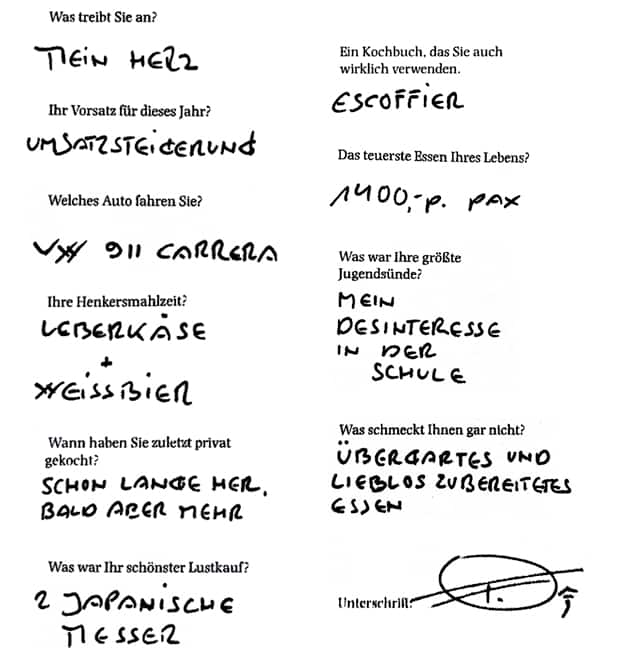 Was treibt Sie an?
MEIN HERZ
Ihr Vorsatz für dieses Jahr?
UMSATZSTEIGERUNG
Welches Auto fahren Sie?
VW 911 CARRERA
Ihre Henkersmahlzeit?
LEBERKÄSE
+
WEISSBIER
Wann haben Sie zuletzt privat
gekocht?
SCHON LANGE HER,
BALD ABER MEHR
Was war Ihr schönster Lustkauf?
2 JAPANISCHE
MESSER
Ein Kochbuch, das Sie auch
wirklich verwenden.
ESCOFFIER
Das teuerste Essen Ihres Lebens?
1400,- P. PAX
Was war Ihre größte
Jugendsünde?
MEIN
DESINTERESSE
IN DER
SCHULE
Was schmeckt Ihnen gar nicht?
ÜBERGARTES UND
LIEBLOS ZUBEREITETES
ESSEN
Unterschrift: